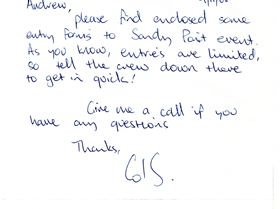 Andrew,
please find enclosed some
entry forms to Sandy Point event.
As you know, entries are limited,
so tell the crew down there
to get in quick!
Give me a call if you
have any questions
Thanks,